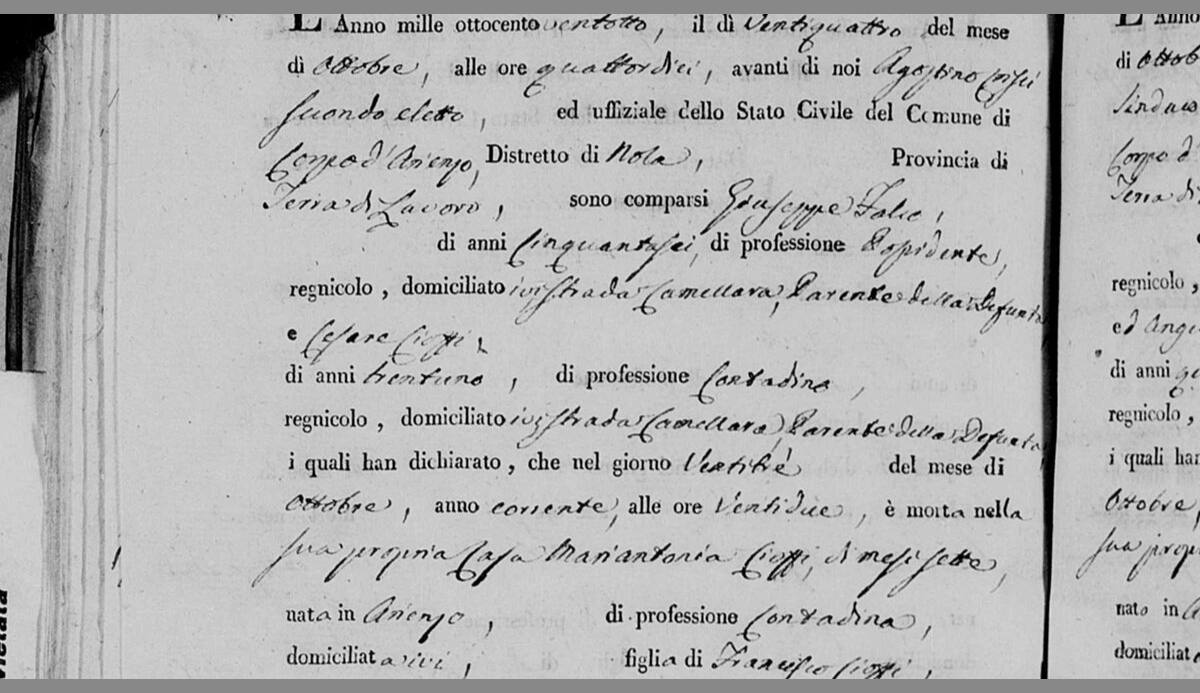 L'Anno mille ottocento ventotto, il dì ventiquattro del mese
di Ottobre, alle ore quattordici, avanti di noi Agostino Crisci
secondo eletto, ed uffiziale dello Stato Civile del Comune di
Corpo d'Arienzo, Distretto di Nola, Provincia di
Terra di Lavoro, sono comparsi Giuseppe Falco,
di anni cinquantasei, di professione Possidente,
regnicolo, domiciliato ivi strada Camellara, Parente della Defunta
e Cesare Cioffi,
di anni trentuno, di professione Contadino,
regnicolo, domiciliato ivi strada Camellara, Parente della Defunta,
i quali han dichiarato, che nel giorno Ventitrè del mese di
Ottobre, anno corrente, alle ore Ventidue, è morta nella
sua propria Casa Mariantonia Cioffi, di mesi sette,
nata in Arienzo, di professione Contadina,
domiciliata ivi, figlia di Francesco Cioffi,
L'Anno
di Ottob
Sindaco
Corpo d'
Terra di
regnicolo,
ed Ange
di anni
regnicolo,
i quali han
Ottobre,
sua propr
nato in A
domiciliat
vietata